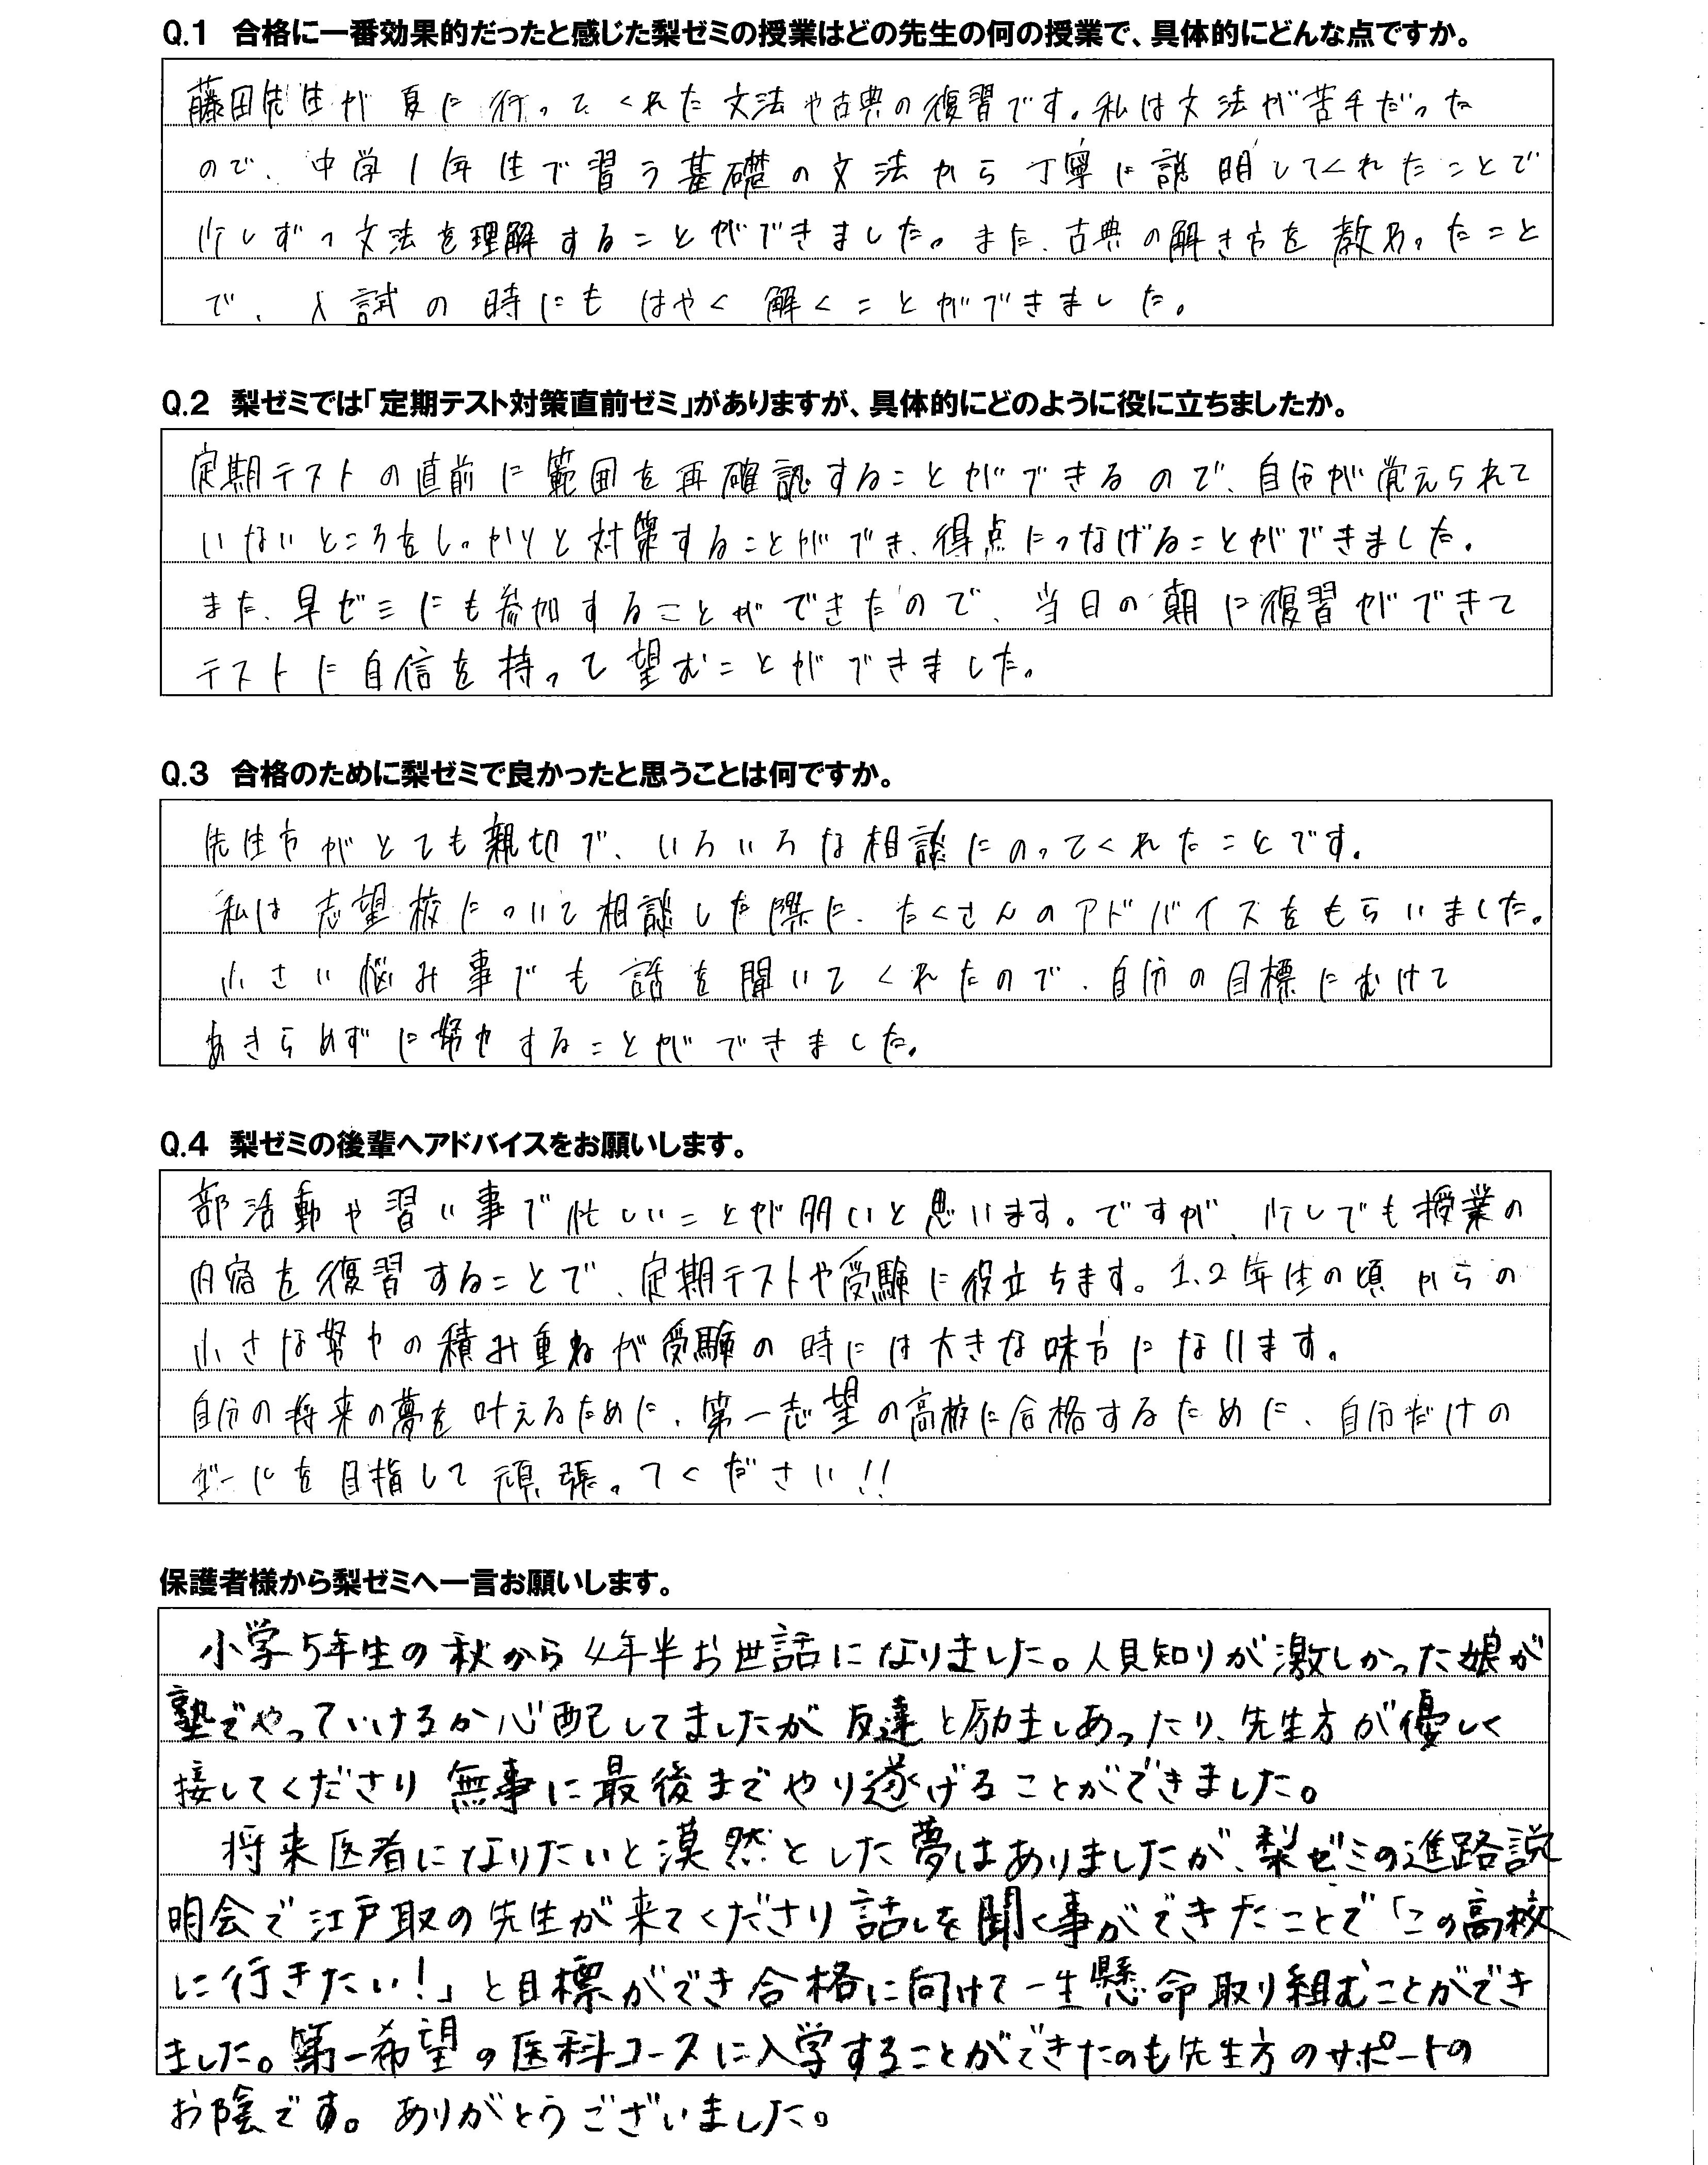 Q.1 合格に一番効果的だったと感じた梨ゼミの授業はどの先生の何の授業で、具体的にどんな点ですか。
藤田先生が夏に行ってくれた文法や古典の復習です。私は文法が苦手だった
ので、中学1年生で習う基礎の文法から丁寧に説明してくれたことで
少しずつ文法を理解することができました。また、古典の解き方を教わったこと
で、入試の時にもはやく解くことができました。
Q.2 梨ゼミでは「定期テスト対策直前ゼミ」がありますが、具体的にどのように役に立ちましたか。
定期テストの直前に範囲を再確認することができるので、自分が覚えられて
いないところをしっかりと対策することができ、得点につなげることができました。
また、早ゼミにも参加することができたので、当日の朝に復習ができて
テストに自信を持って望むことができました。
Q.3 合格のために梨ゼミで良かったと思うことは何ですか。
先生方がとても親切で、いろいろな相談にのってくれたことです。
私は志望校について相談した際に、たくさんのアドバイスをもらいました。
小さい悩み事でも話を聞いてくれたので、自分の目標にむけて
あきらめずに努力することができました。
Q.4 梨ゼミの後輩へアドバイスをお願いします。
部活動や習い事で忙しいことが多いと思います。ですが、少しでも授業の
内容を復習することで、定期テストや受験に役立ちます。1、2年生の頃からの
小さな努力の積み重ねが受験の時には大きな味方になります。
自分の将来の夢を叶えるために、第一志望の高校に合格するために、自分だけの
ゴールを目指して頑張ってください!!
保護者様から梨ゼミへ一言お願いします。
小学5年生の秋から4年半お世話になりました。人見知りが激しかった娘が
塾でやっていけるか心配してましたが友達と励ましあったり、先生方が優しく
接してくださり無事に最後までやり遂げることができました。
将来医者になりたいと漠然とした夢はありましたが、梨ゼミの進路説
明会で江戸取の先生が来てくださり話しを聞く事ができたことで「この高校
に行きたい!」と目標ができ合格に向けて一生懸命取り組むことができ
ました。第一希望の医科コースに入学することができたのも先生方のサポートの
お陰です。ありがとうございました。